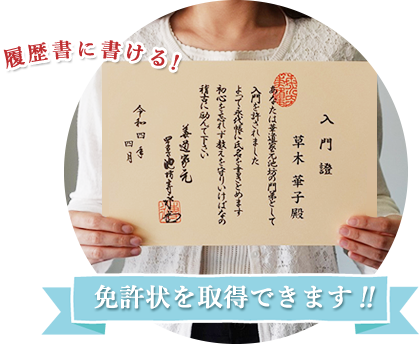 履歴書に書ける!
入門證
草木 華子殿
あなたは華道家元池坊の門弟として
入門を許されました
よって永代帳に氏名を書きとどめます
初心を忘れず教えを守りいけばなの
稽古に励んで下さい
令和四年
四月
華道家元
免許状を取得できます!!